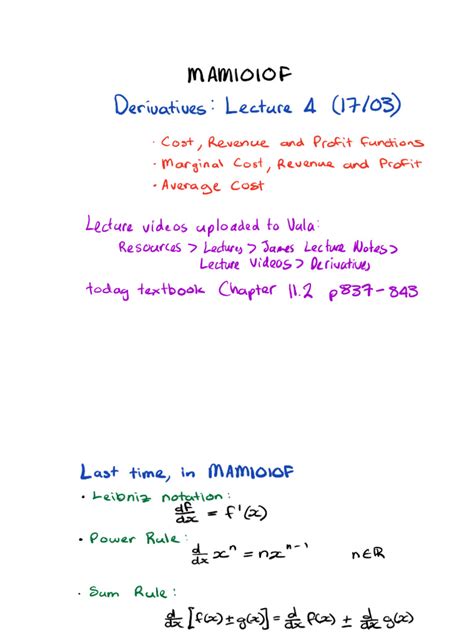 MAM1010F
Derivatives: Lecture 4 (17/03)
· Cost, Revenue and Profit Functions
· Marginal Cost, Revenue and Profit
· Average Cost
Lecture videos uploaded to Vula:
Resources > Lectures > James Lecture Notes >
Lecture Videos > Derivatives
today textbook Chapter 11.2 p837-843
Last time, in MAM1010F
· Leibniz notation:
df/dx = f'(x)
· Power Rule:
d/dx xⁿ = nxⁿ⁻¹ n∈ℝ
· Sum Rule:
d/dx [f(x) ± g(x)] = d/dx f(x) ± d/dx g(x)